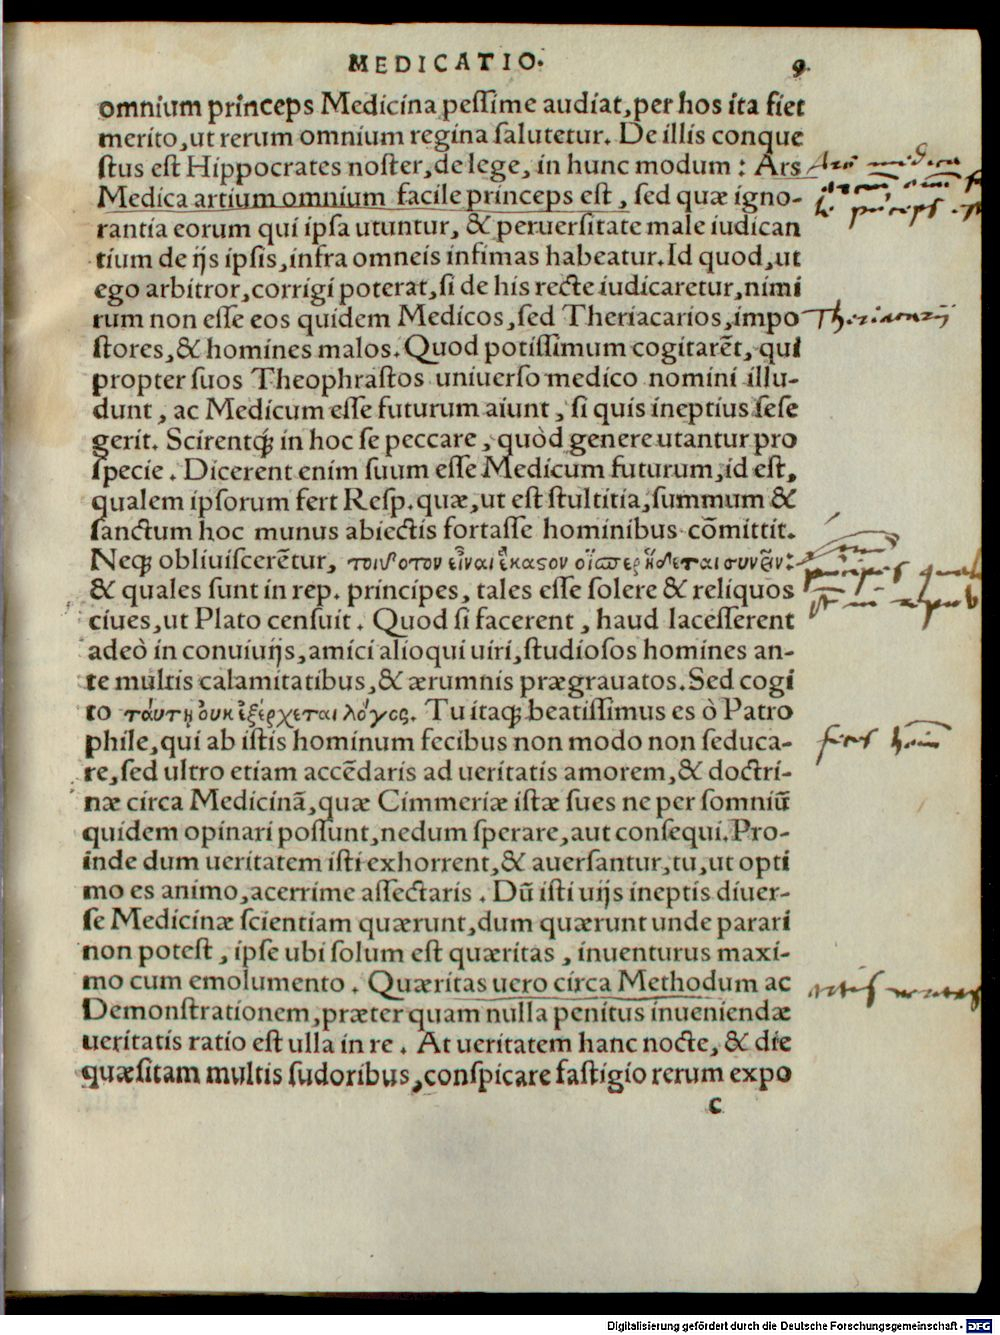 MEDICATIO. 9.
omnium princeps Medicina peſſime audiat, per hos ita fiet
merito, ut rerum omnium regina ſalutetur. De illis conque
ſtus eſt Hippocrates noſter, de lege, in hunc modum : Ars
Medica artium omnium facile princeps eſt, ſed quæ igno-
rantia eorum qui ipſa utuntur, & peruerſitate male iudican
tium de ijs ipſis, infra omneis infimas habeatur. Id quod, ut
ego arbitror, corrigi poterat, ſi de his recte iudicaretur, nimi
rum non eſſe eos quidem Medicos, ſed Theriacarios, impo
Theriacarij
ſtores, & homines malos. Quod potiſſimum cogitarẽt, qui
propter ſuos Theophraſtos uniuerſo medico nomini illu-
dunt, ac Medicum eſſe futurum aiunt, ſi quis ineptius ſeſe
gerit. Scirentq́; in hoc ſe peccare, quòd genere utantur pro
ſpecie. Dicerent enim ſuum eſſe Medicum futurum, id eſt,
qualem ipſorum fert Reſp. quæ, ut eſt ſtultitia, ſummum &
ſanctum hoc munus abiectis fortaſſe hominibus cõmittit.
Neq; obliuiſcerẽtur, τοιοῦτον εἶναι ἕκαστον οἷάπερ ἥδεται συνεῖν:
& quales ſunt in rep. principes, tales eſſe ſolere & reliquos
ciues, ut Plato cenſuit. Quod ſi facerent, haud laceſſerent
adeò in conuiuijs, amici alioqui uiri, ſtudioſos homines an-
te multis calamitatibus, & ærumnis prægrauatos. Sed cogi
to ταύτῃ οὐκ ἐξέρχεται λόγος. Tu itaq; beatiſſimus es ò Patro
phile, qui ab iſtis hominum fecibus non modo non ſeduca-
feces hoim̃
re, ſed ultro etiam accẽdaris ad ueritatis amorem, & doctri-
næ circa Medicinã, quæ Cimmeriæ iſtæ ſues ne per ſomniũ
quidem opinari poſſunt, nedum ſperare, aut conſequi. Pro-
inde dum ueritatem iſti exhorrent, & auerſantur, tu, ut opti
mo es animo, acerrime aſſectaris. Dũ iſti uijs ineptis diuer-
ſe Medicinæ ſcientiam quærunt, dum quærunt unde parari
non poteſt, ipſe ubi ſolum eſt quæritas, inuenturus maxi-
mo cum emolumento. Quæritas uero circa Methodum ac
Demonſtrationem, præter quam nulla penitus inueniendæ
ueritatis ratio eſt ulla in re. At ueritatem hanc nocte, & die
quæſitam multis ſudoribus, conſpicare faſtigio rerum expo
c
Digitalisierung gefördert durch die Deutsche Forschungsgemeinschaft - DFG